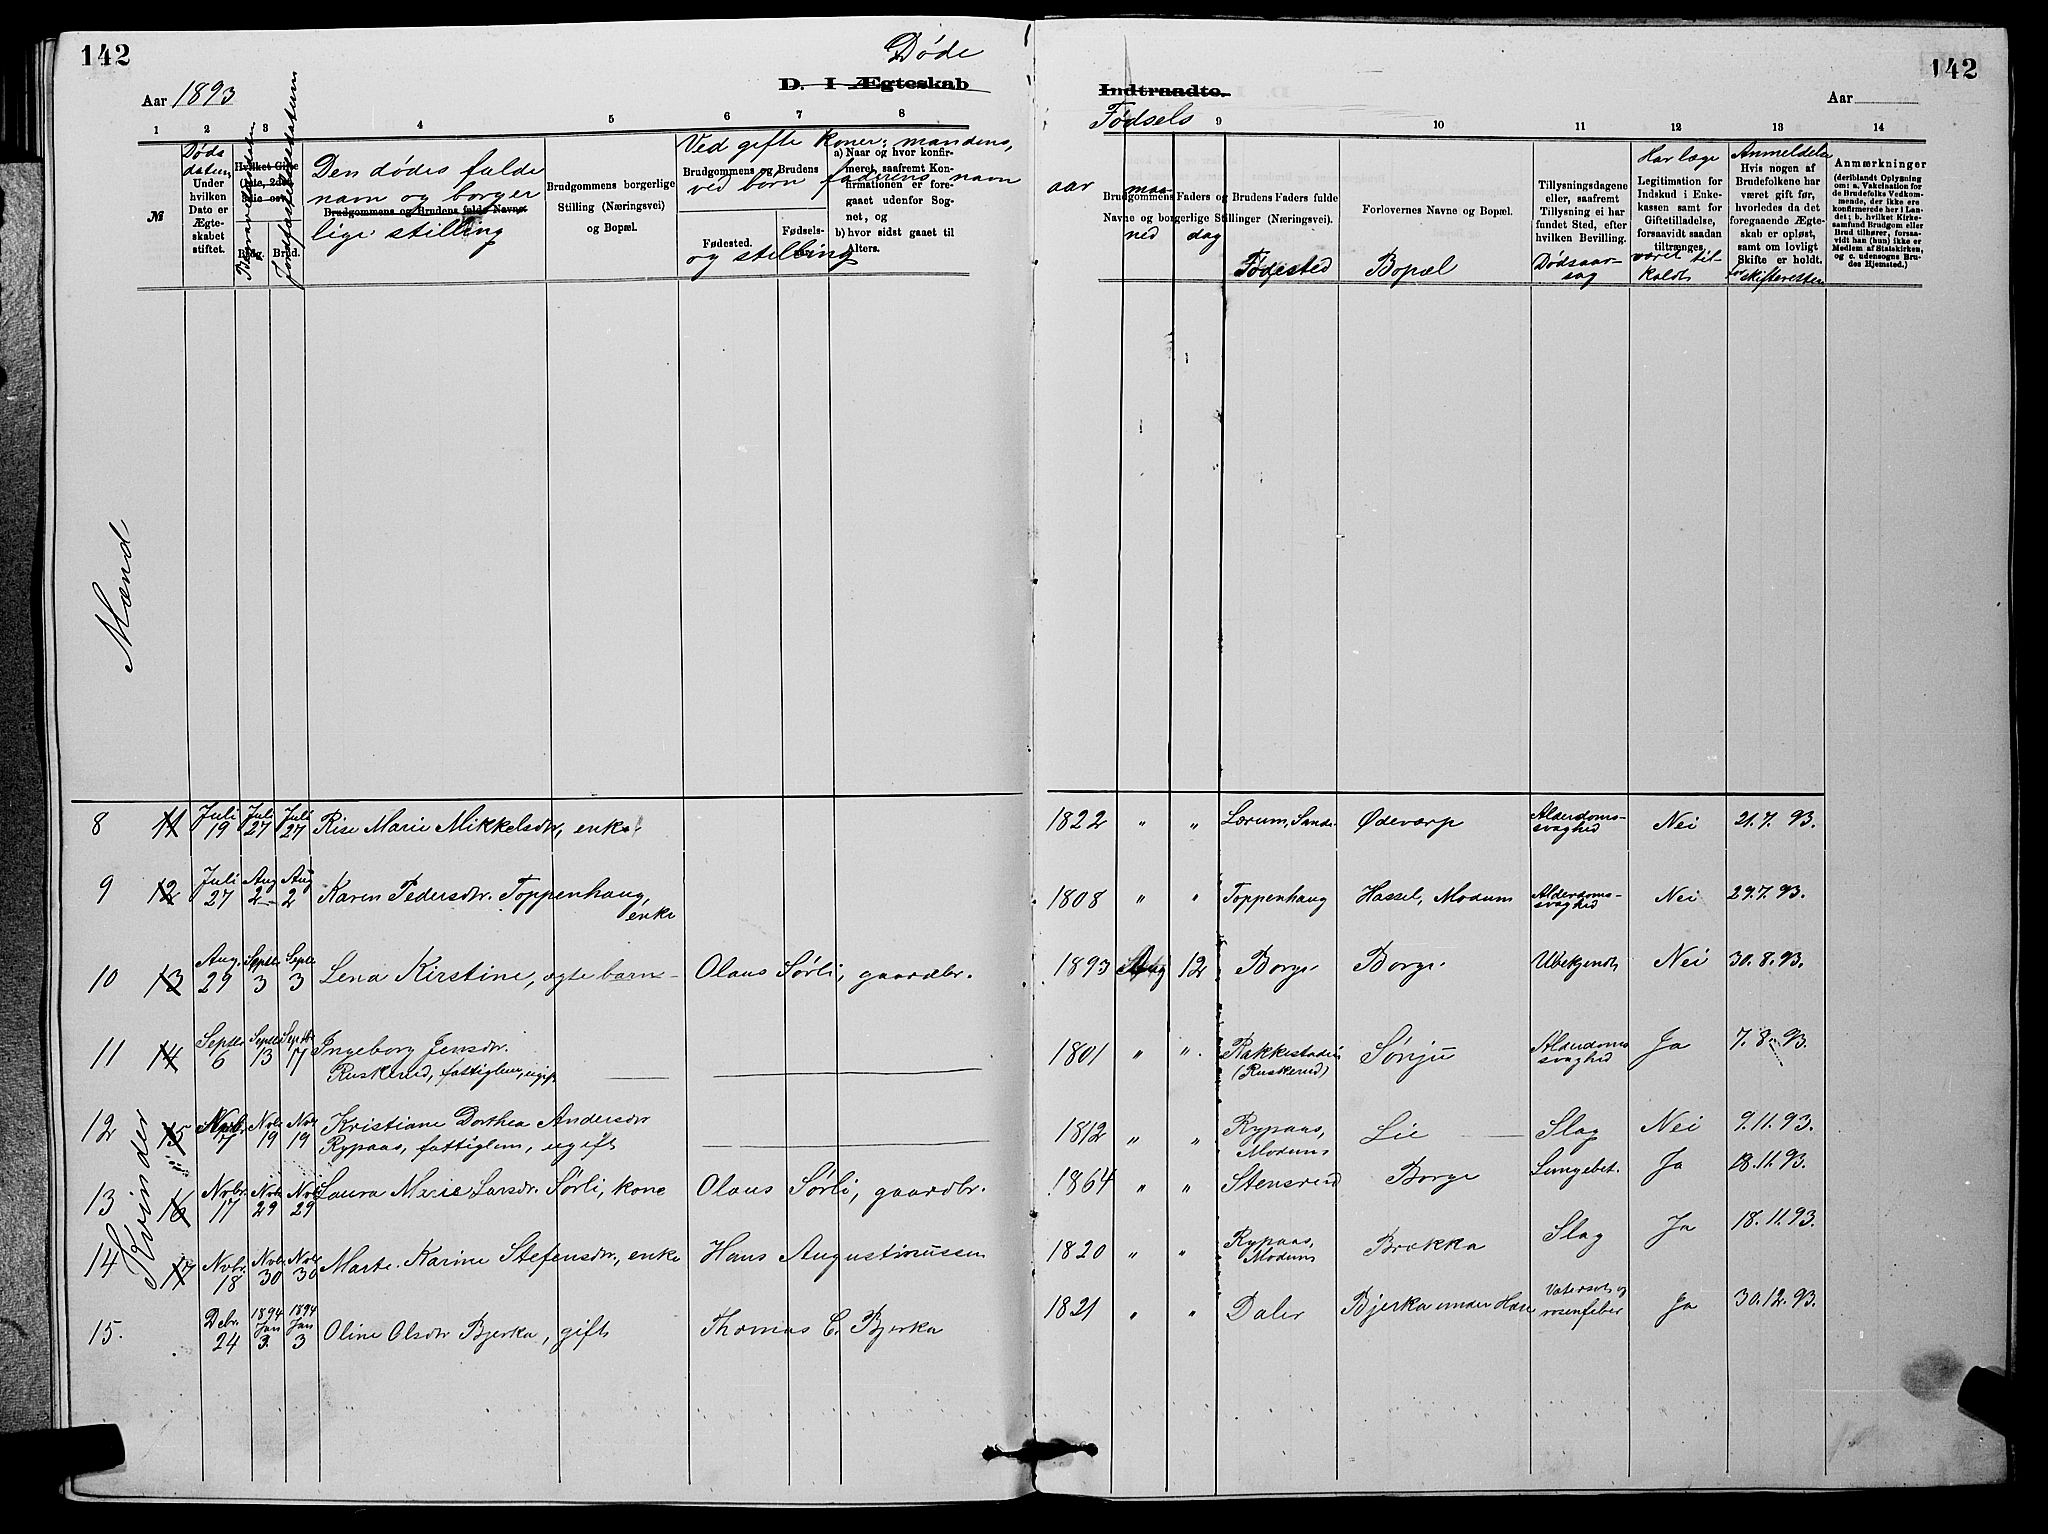 142
Døde
D. I Ægteskab
Indtraadte.
142
Aar 1893
Aar
1 2 3 4 5 6 7 8
Fødsels
9 10 11 12 13 14
№
Døds
datum
Under
hvilken
Dato er
Ægte-
skabet
stiftet.
Begravelsesdatum
Jordfæstelsesdatum
Hvilket Gifte
(1ste, 2det,
3die osv.)
Brdg. Brud.
Den dødes fulde
navn og borger
Brudgommens og Brudens fulde Navne
lige stilling
Brudgommens borgerlige
Stilling (Næringsvei)
og Bopæl.
Ved gifte koner: mandens,
Brudgommens og Brudens
ved børn faderens navn
Fødested.
Fødsels-
aar
og stilling
a) Naar og hvor konfir-
meret, saafremt Kon-
firmationen er fore-
gaaet udenfor Sog-
net, og
b) hvor sidst gaaet til
Alters.
aar
maa-
ned
dag
Brudgommens Faders og Brudens Faders fulde
Navne og borgerlige Stillinger (Næringsvei).
Fødested
Forlovernes Navne og Bopæl.
Bopæl
Tillysningsdagene
eller, saafremt
Tillysning ei har
fundet Sted, efter
hvilken Bevilling.
Dødsaar-
sag
Har læge
Legitimation for
Indskud i Enke-
kassen samt for
Giftetilladelse,
forsaavidt saadan
tiltrænges.
været til-
kaldt
Anmeldelse
Hvis nogen af
Brudefolkene har
været gift før,
hvorledes da det
foregaaende Ægte-
skab er opløst,
samt om lovligt
Skifte er holdt.
for skifteretten
Anmærkninger
(deriblandt Oplysning
om: a. Vakcination for
de Brudefolks Vedkom-
mende, der ikke ere
konfirmerede her i Lan-
det; b. hvilket Kirke-
samfund Brudgom eller
Brud tilhører, forsaa-
vidt han (hun) ikke er
Medlem af Statskirken,
og c. udensogns Bru-
des Hjemsted.)
Mænd
Kvinder
8 11 Juli 19 Juli 27 Juli 27 Rise Marie Mikkelsdtr, enke 1822 " " Lørum, Sande Ødevarp Alderdoms-
svaghed Nei 21.7.93.
9 12 Juli 27 Aug 2 Aug 2 Karen Pedersdtr. Toppenhaug,
enke 1808 " " Toppenhaug Hassel, Modum Alderdoms-
svaghed Nei 29.7.93.
10 13 Aug. 29 Septbr 3 Septbr 3 Lena Kirstine, ægte barn Olaus Sørli, gaardbr. 1893 Aug 12 Borge Borge Ubekjendt Nei 30.8.93.
11 14 Septbr 6 Septbr 13 Septbr 17 Ingeborg Jensdtr.
Ruskerud, fattiglem, ugift 1801 " " Rakkestadeie
(Ruskerud) Sønju Alderdoms
svaghed Ja 7.8.93.
12 15 Novbr. 7 Novbr 19 Novbr 19 Kristiane Dorthea Andersdtr
Rypaas, fattiglem, ugift 1812 " " Rypaas,
Modum Lie Slag Nei 9.11.93.
13 16 Novbr. 17 Novbr 29 Novbr 29 Laura Marie Larsdr. Sørli, kone Olaus Sørli, gaardbr. 1864 " " Stensrud Borge Lungebet. Ja 18.11.93.
14 17 Novbr. 18 Novbr 30 Novbr 30 Marte Karine Stefensdtr, enke Hans Augustinussen 1820 " " Rypaas,
Modum Brækka Slag Ja 18.11.93.
15. Debr. 24 1894 Jan 3. 1894 Jan 3 Oline Olsdtr Bjerka, gift Thomas C. Bjerka 1821 " " Daler Bjerka under Hære Vatersot og
rosenfeber Ja 30.12.93.